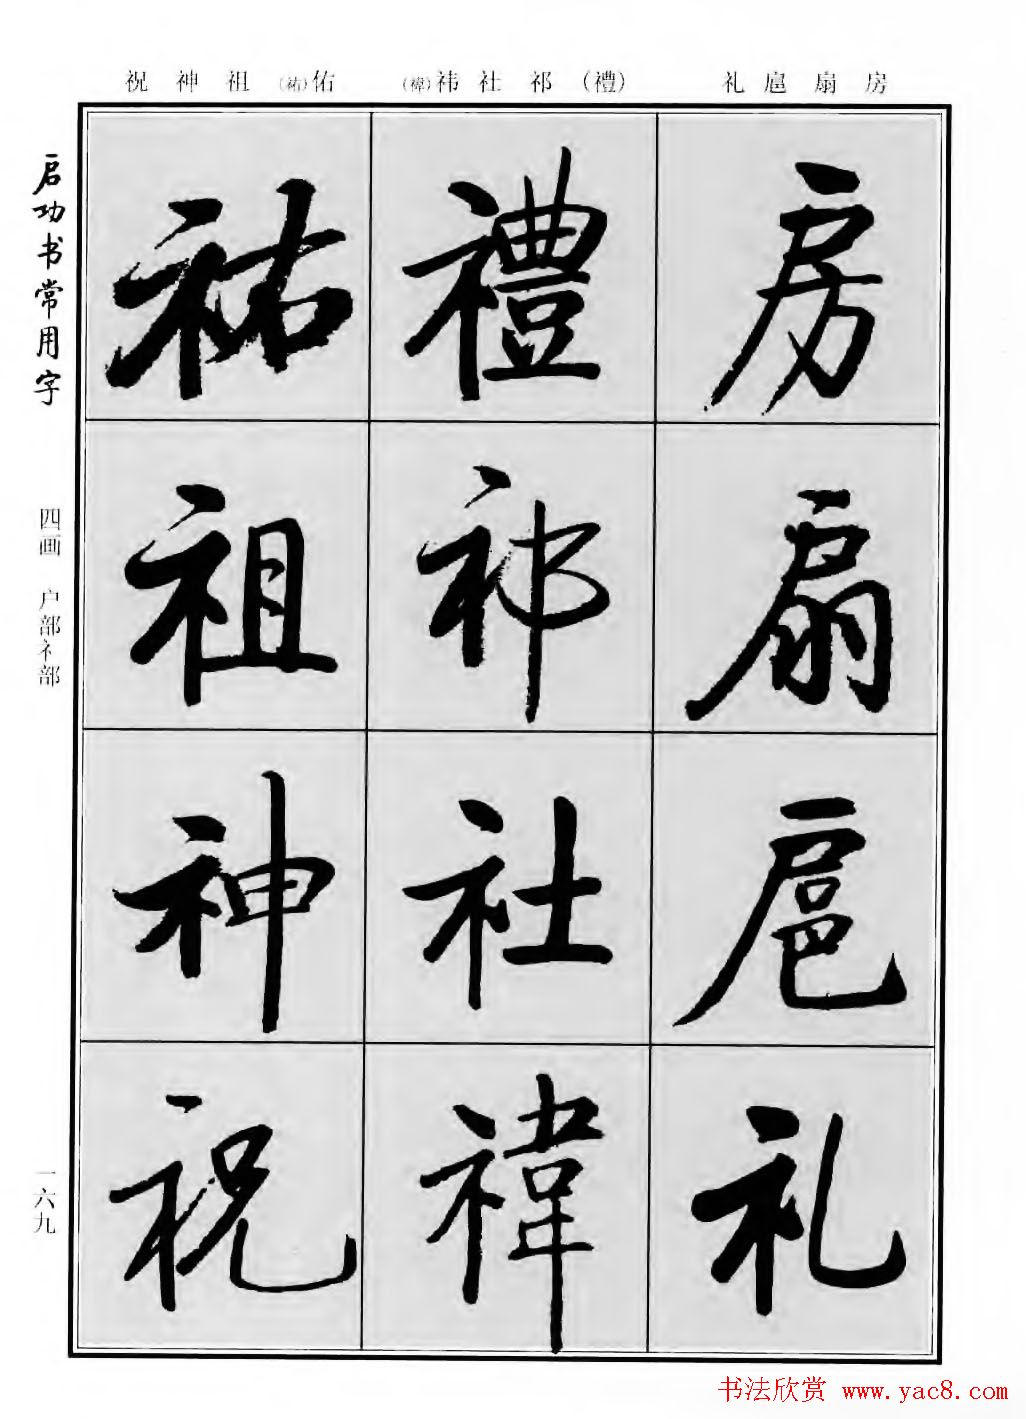 房扇扈礼
(禮)祁社祎(禕)
佑(祐)祖神祝
房
扇
扈
礼
禮
祁
社
禕
祐
祖
神
祝
启功书常用字
四画 户部礻部
一六九
书法欣赏 www.yac8.com